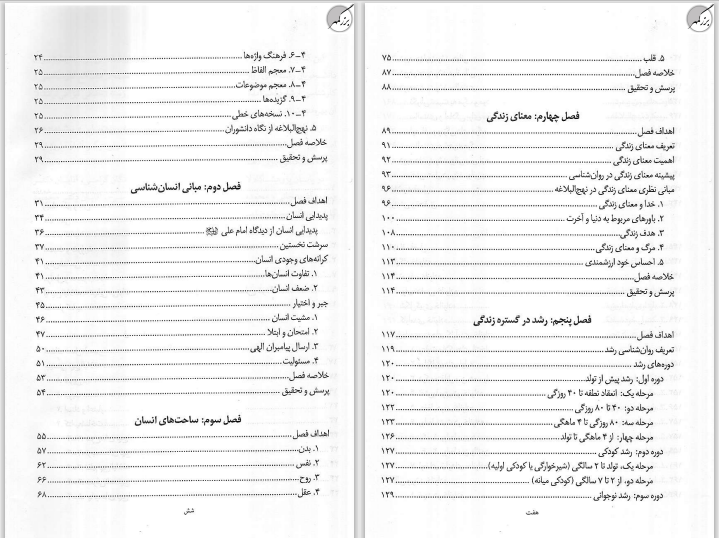 بزرگمهر
۴-۶. فرهنگ واژه‌ها ۲۴
۴-۷. معجم الفاظ ۲۵
۴-۸. معجم موضوعات ۲۵
۴-۹. گزیده‌ها ۲۵
۴-۱۰. نسخه‌های خطی ۲۵
۵. نهج‌البلاغه از نگاه دانشوران ۲۶
خلاصه فصل ۲۹
پرسش و تحقیق ۲۹
فصل دوم: مبانی انسان‌شناسی
اهداف فصل ۳۱
پدیدایی انسان ۳۴
پدیدایی انسان از دیدگاه امام علی ۳۶
سرشت نخستین ۳۷
کرانه‌های وجودی انسان ۴۱
۱. تفاوت انسان‌ها ۴۱
۲. ضعف انسان ۴۳
جبر و اختیار ۴۵
۱. مشیت انسان ۴۶
۲. امتحان و ابتلا ۴۷
۳. ارسال پیامبران الهی ۵۰
۴. مسئولیت ۵۱
خلاصه فصل ۵۳
پرسش و تحقیق ۵۴
فصل سوم: ساحت‌های انسان
اهداف فصل ۵۵
۱. بدن ۵۷
۲. نفس ۶۲
۳. روح ۶۶
۴. عقل ۶۸
شش
بزرگمهر
۵. قلب ۷۵
خلاصه فصل ۸۷
پرسش و تحقیق ۸۸
فصل چهارم: معنای زندگی
اهداف فصل ۸۹
تعریف معنای زندگی ۹۱
اهمیت معنای زندگی ۹۲
پیشینه معنای زندگی در روان‌شناسی ۹۳
مبانی نظری معنای زندگی در نهج‌البلاغه ۹۶
۱. خدا و معنای زندگی ۹۶
۲. باورهای مربوط به دنیا و آخرت ۱۰۰
۳. هدف زندگی ۱۰۸
۴. مرگ و معنای زندگی ۱۱۰
۵. احساس خود ارزشمندی ۱۱۳
خلاصه فصل ۱۱۴
پرسش و تحقیق ۱۱۴
فصل پنجم: رشد در گستره زندگی
اهداف فصل ۱۱۷
تعریف روان‌شناسی رشد ۱۱۹
دوره‌های رشد ۱۲۰
دوره اول: رشد پیش از تولد ۱۲۰
مرحله یک: انعقاد نطفه تا ۴۰ روزگی ۱۲۰
مرحله دو: ۴۰ تا ۸۰ روزگی ۱۲۲
مرحله سه: ۸۰ روزگی تا ۴ ماهگی ۱۲۳
مرحله چهار: از ۴ ماهگی تا تولد ۱۲۶
دوره دوم: رشد کودکی ۱۲۷
مرحله یک، تولد تا ۲ سالگی (شیرخوارگی یا کودکی اولیه) ۱۲۷
مرحله دو، از ۲ تا ۷ سالگی (کودکی میانه) ۱۲۷
دوره سوم: رشد نوجوانی ۱۲۹
هفت